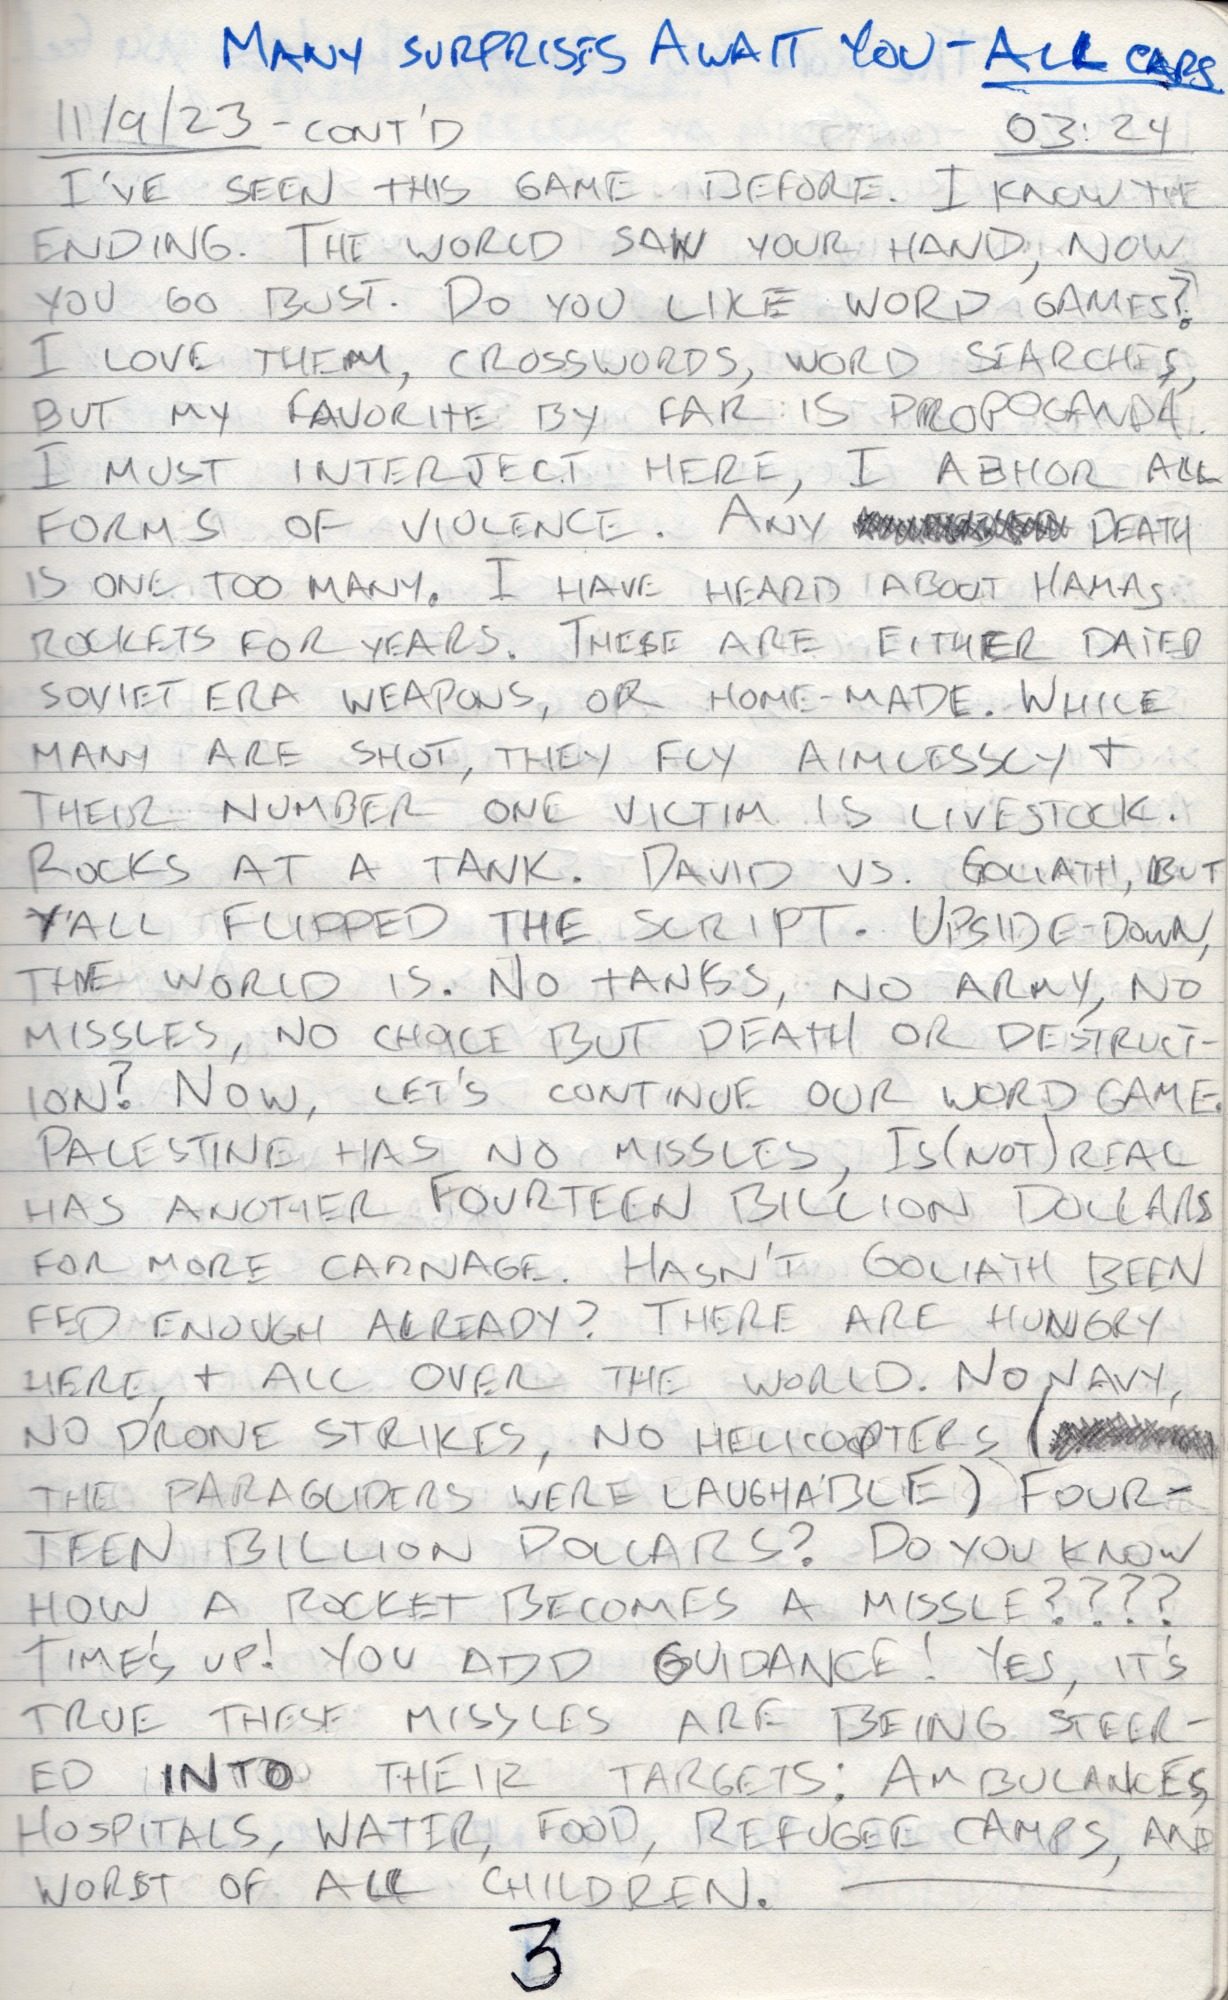 MANY SURPRISES AWAIT YOU - ALL CAPS
11/9/23 - CONT'D 03:24
I'VE SEEN THIS GAME BEFORE. I KNOW THE
ENDING. THE WORLD SAW YOUR HAND, NOW
YOU GO BUST. DO YOU LIKE WORD GAMES?
I LOVE THEM, CROSSWORDS, WORD SEARCHES,
BUT MY FAVORITE BY FAR IS PROPOGANDA.
I MUST INTERJECT HERE, I ABHOR ALL
FORMS OF VIOLENCE. ANY DEATH
IS ONE TOO MANY. I HAVE HEARD ABOUT HAMAS
ROCKETS FOR YEARS. THESE ARE EITHER DATED
SOVIET ERA WEAPONS, OR HOME-MADE. WHILE
MANY ARE SHOT, THEY FLY AIMLESSLY +
THEIR NUMBER ONE VICTIM IS LIVESTOCK.
ROCKS AT A TANK. DAVID VS. GOLIATH, BUT
Y'ALL FLIPPED THE SCRIPT. UPSIDE-DOWN,
THE WORLD IS. NO TANKS, NO ARMY, NO
MISSLES, NO CHOICE BUT DEATH OR DESTRUCT-
ION? NOW, LET'S CONTINUE OUR WORD GAME.
PALESTINE HAS NO MISSLES, IS(NOT)REAL
HAS ANOTHER FOURTEEN BILLION DOLLARS
FOR MORE CARNAGE. HASN'T GOLIATH BEEN
FED ENOUGH ALREADY? THERE ARE HUNGRY
HERE, + ALL OVER THE WORLD. NO NAVY,
NO DRONE STRIKES, NO HELICOPTERS (
THE PARAGLIDERS WERE LAUGHABLE) FOUR-
TEEN BILLION DOLLARS? DO YOU KNOW
HOW A ROCKET BECOMES A MISSLE????
TIME'S UP! YOU ADD GUIDANCE! YES, IT'S
TRUE THESE MISSLES ARE BEING STEER-
ED INTO THEIR TARGETS: AMBULANCES,
HOSPITALS, WATER, FOOD, REFUGEE CAMPS, AND
WORST OF ALL CHILDREN.
3